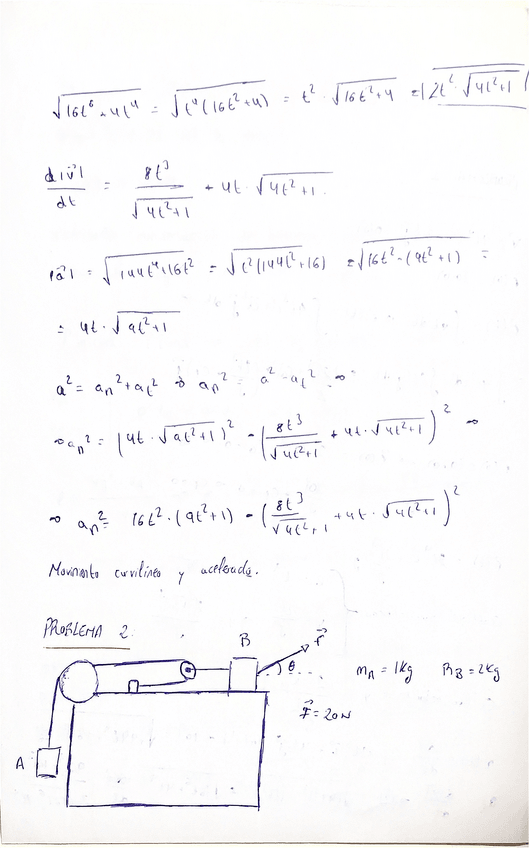 √(16t⁶+4t⁴) = √(t⁴(16t²+4)) = t²·√(16t²+4) = |2t²·√(4t²+1)|
d|v⃗|/dt = 8t³/√(4t²+1) + 4t·√(4t²+1)
|a⃗| = √(144t⁴+16t²) = √(t²(144t²+16)) = √(16t²·(9t²+1)) =
= 4t·√(9t²+1)
a² = aₙ²+aₜ² ⇒ aₙ² = a²-aₜ² ⇒
⇒ aₙ² = (4t·√(9t²+1))² - (8t³/√(4t²+1) + 4t·√(4t²+1))² ⇒
⇒ aₙ² = 16t²·(9t²+1) - (8t³/√(4t²+1) + 4t·√(4t²+1))²
Movimiento curvilíneo y acelerado.
PROBLEMA 2
B F⃗
θ
mA = 1Kg mB = 2Kg
F⃗ = 20N
A